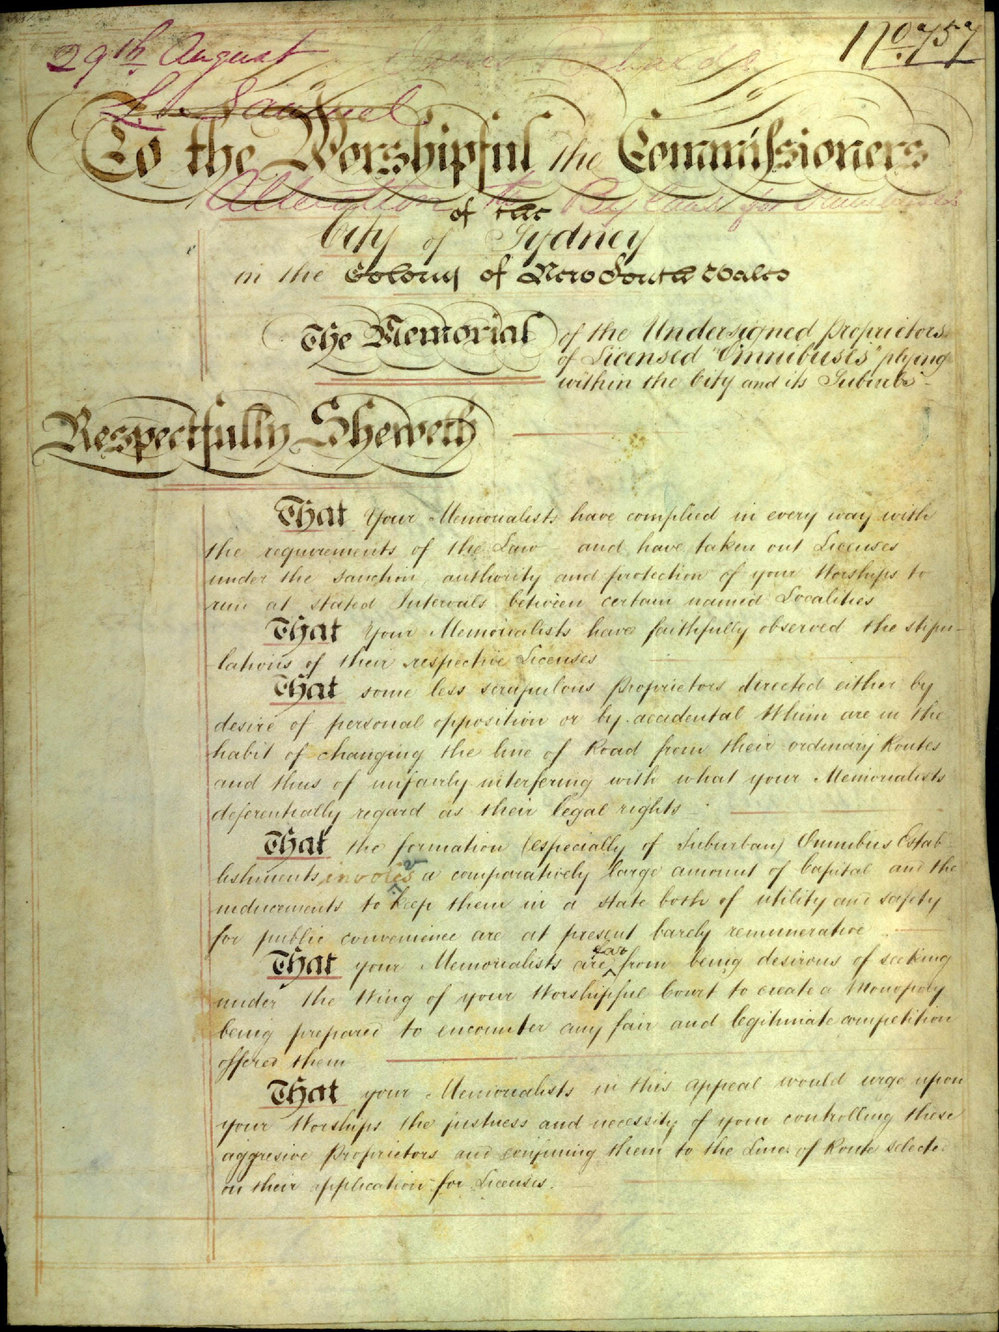 29th August
No. 757
L. Samuel
To the Worshipful the Commissioners
Alteration to Bye Laws for Omnibuses
of the
City of Sydney
in the Colony of New South Wales
The Memorial of the Undersigned Proprietors
of Licensed "Omnibuses" plying
within the City and its Suburbs
Respectfully Sheweth
That Your Memorialists have complied in every way with
the requirements of the Law and have taken out Licenses
under the sanction, authority and protection of your Worships to
run at stated Intervals between certain named Localities
That Your Memorialists have faithfully observed the stipu-
lations of their respective Licenses
That some less scrupulous Proprietors directed either by
desire of personal opposition or by accidental Whim are in the
habit of changing the line of Road from their ordinary Routes
and thus of unfairly interfering with what your Memorialists
deferentially regard as their legal rights
That the formation (especially of Suburban) Omnibus Estab-
lishments involves a comparatively large amount of Capital and the
inducements to keep them in a state both of utility and safety
for public convenience are at present barely remunerative
That your Memorialists are far from being desirous of seeking
under the Wing of your Worshipful Court to create a Monopoly
being prepared to encounter any fair and legitimate competition
offered them
That your Memorialists in this appeal would urge upon
your Worships the justness and necessity of your controlling these
aggresive Proprietors and confining them to the Line of Route selected
on their application for Licenses.